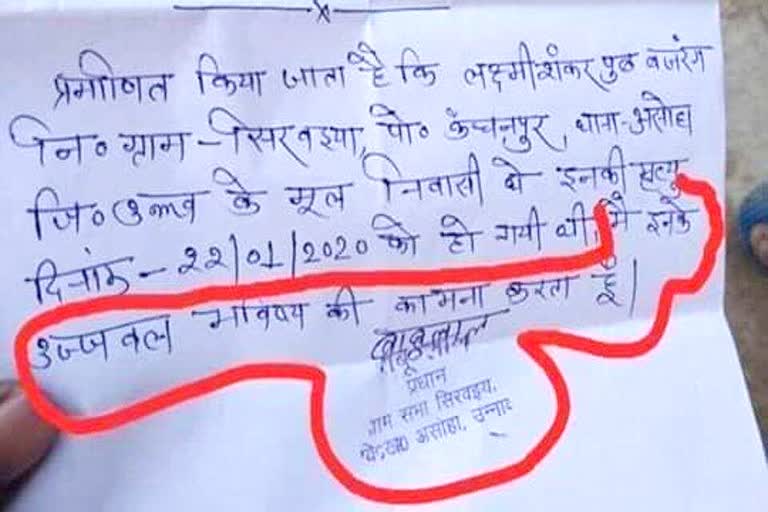 प्रमाणित किया जाता है कि लक्ष्मीशंकर पुत्र बजरंग
नि० ग्राम - सिरवइया, पो० कंचनपुर, थाना - असोहा
जि० उन्नाव के मूल निवासी थे इनकी मृत्यु
दिनांक - 22/01/2020 को हो गयी थी, मै इनके
उज्जवल भविष्य की कामना करता हूँ।
बाबूलाल
प्रधान
ग्राम सभा सिरवइया,
असोहा, उन्नाव